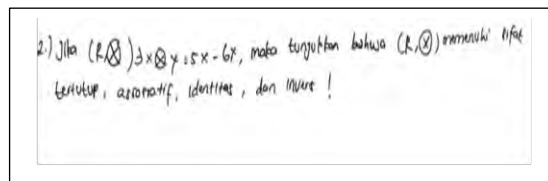 2.) Jika (R,⊗) J x ⊗ y = 5x - 6x, maka tunjukkan bahwa (R,⊗) memenuhi sifat
tertutup, assosiatif, identitas, dan invers !